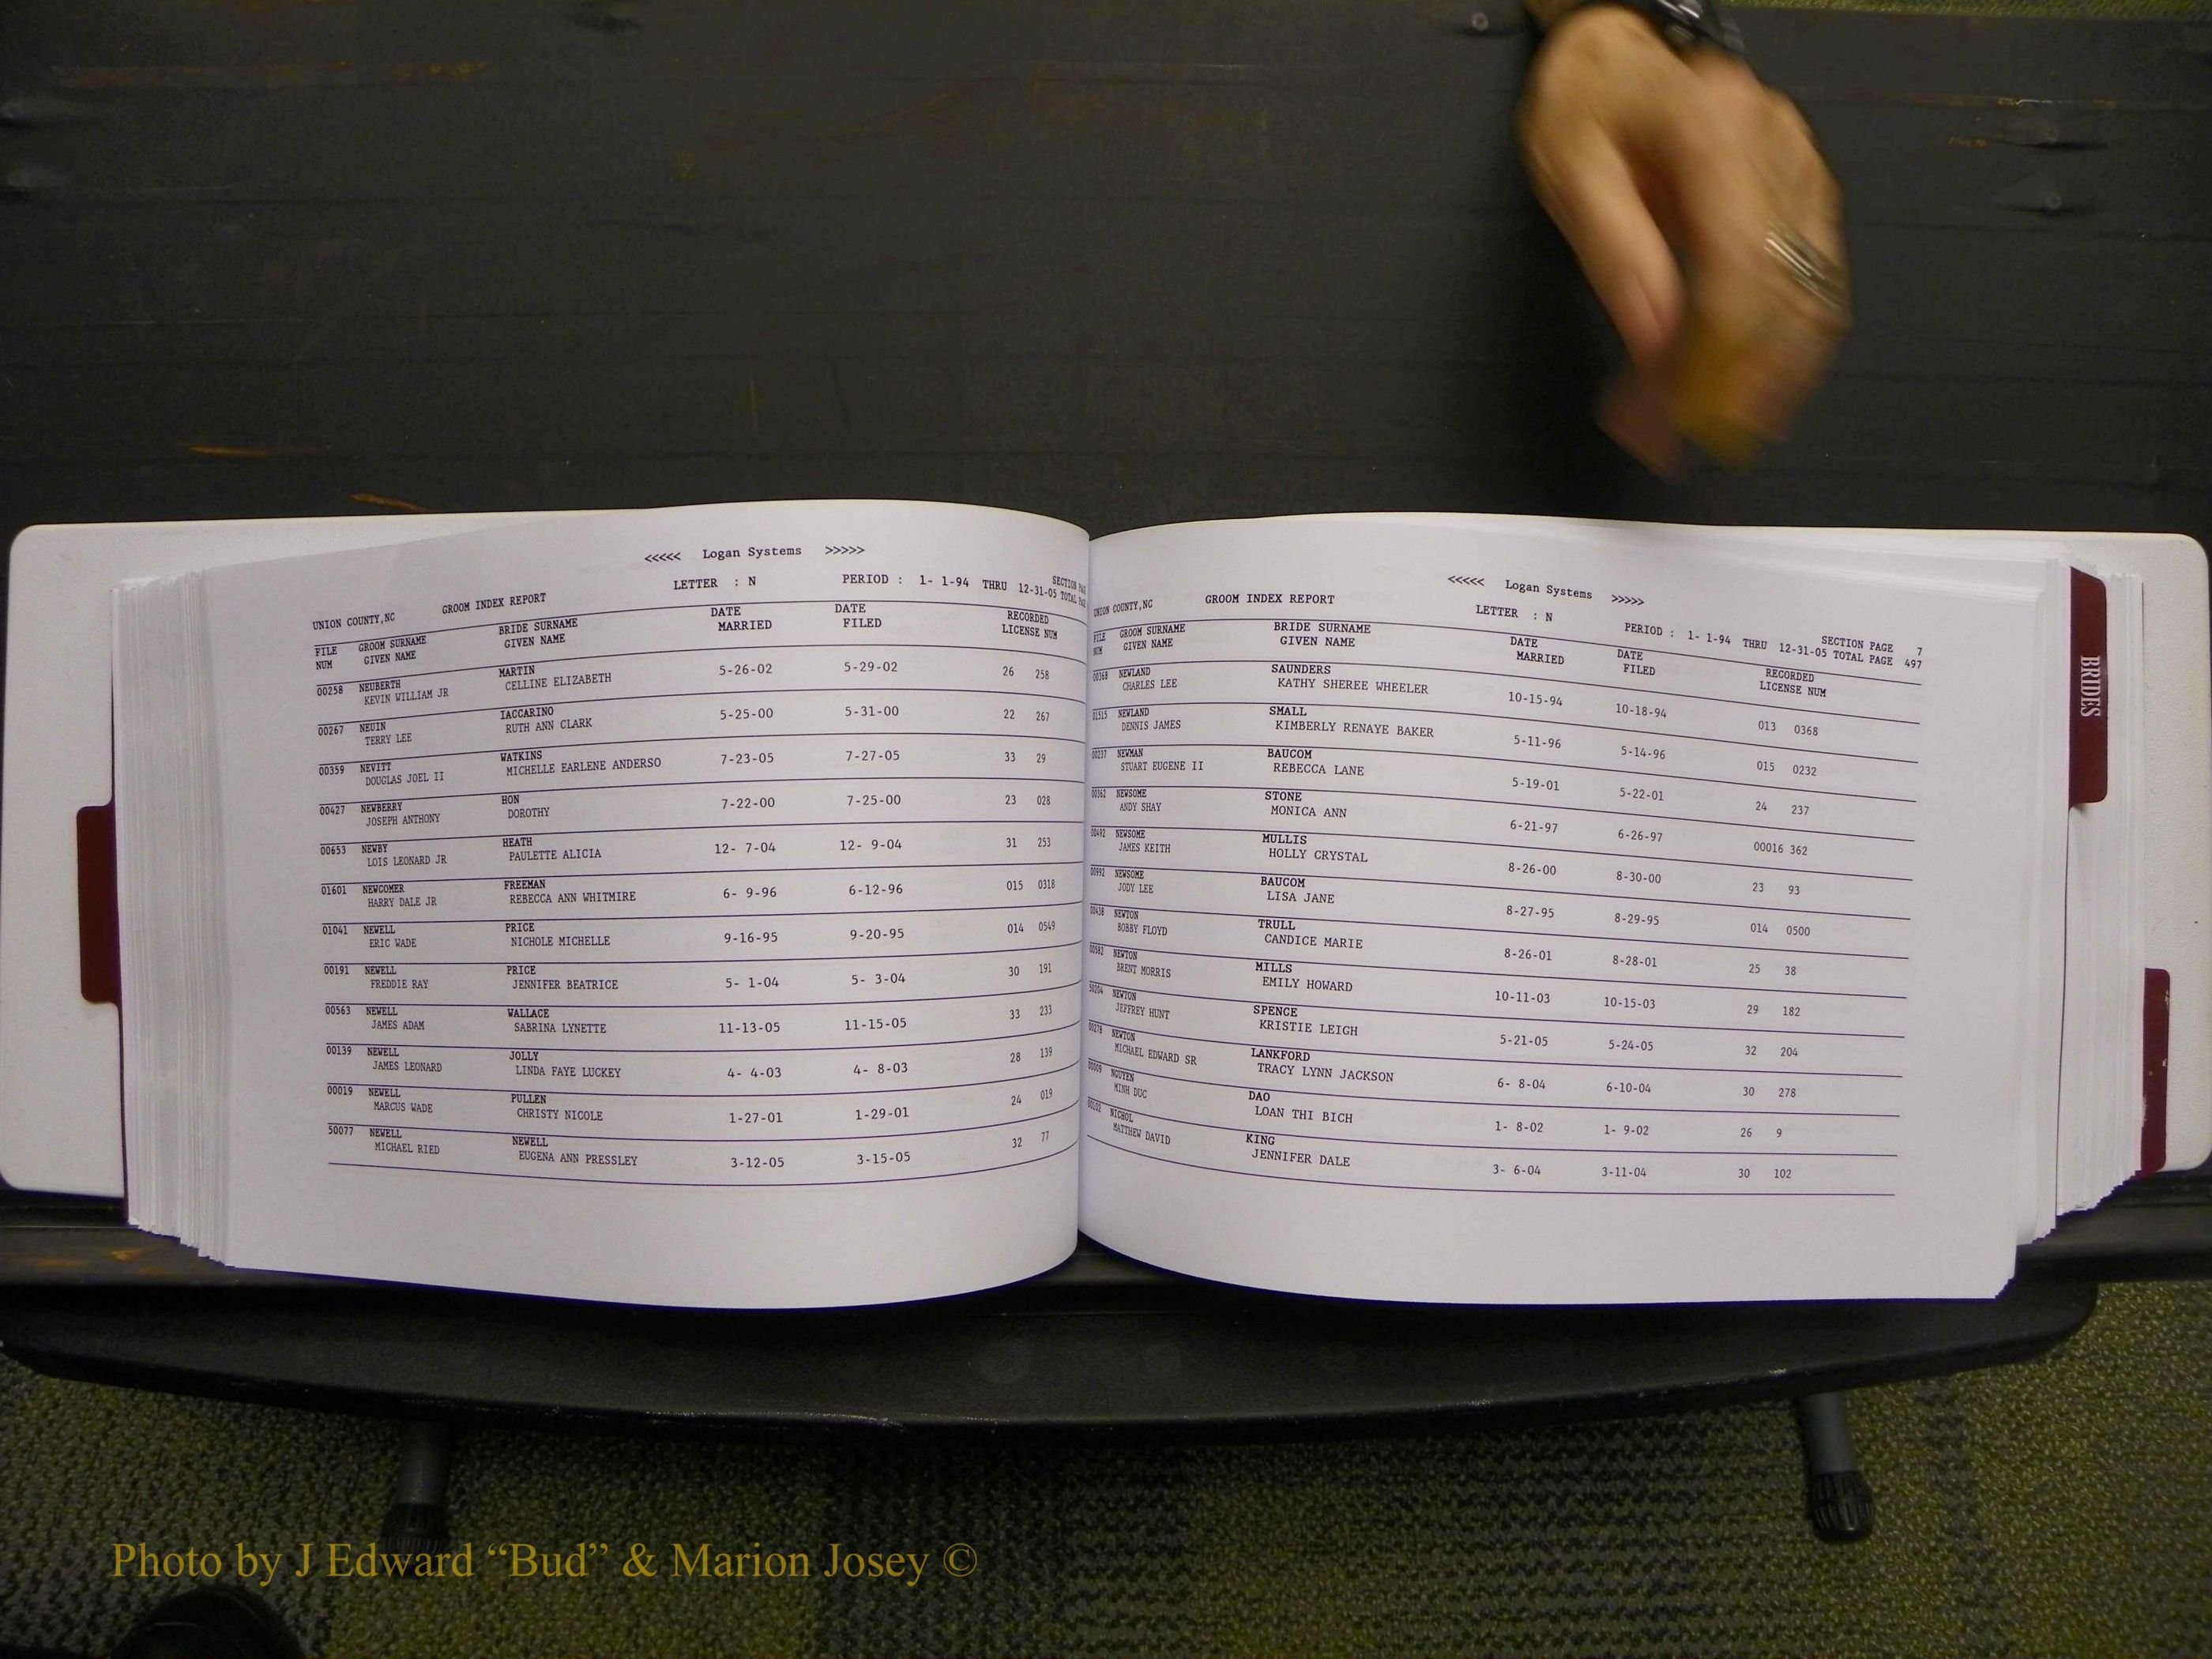 <<<<< Logan Systems >>>>>
LETTER : N PERIOD : 1- 1-94 THRU 12-31-05 TOTAL
SECTION
UNION COUNTY,NC GROOM INDEX REPORT
FILE GROOM SURNAME BRIDE SURNAME DATE DATE RECORDED
NUM GIVEN NAME GIVEN NAME MARRIED FILED LICENSE NUM
00258 NEUBERTH MARTIN 5-26-02 5-29-02 26 258
KEVIN WILLIAM JR CELLINE ELIZABETH
00267 NEUIN IACCARINO 5-25-00 5-31-00 22 267
TERRY LEE RUTH ANN CLARK
00359 NEVITT WATKINS 7-23-05 7-27-05 33 29
DOUGLAS JOEL II MICHELLE EARLENE ANDERSO
00427 NEWBERRY HON 7-22-00 7-25-00 23 028
JOSEPH ANTHONY DOROTHY
00653 NEWBY HEATH 12- 7-04 12- 9-04 31 253
LOIS LEONARD JR PAULETTE ALICIA
01601 NEWCOMER FREEMAN 6- 9-96 6-12-96 015 0318
HARRY DALE JR REBECCA ANN WHITMIRE
01041 NEWELL PRICE 9-16-95 9-20-95 014 0549
ERIC WADE NICHOLE MICHELLE
00191 NEWELL PRICE 5- 1-04 5- 3-04 30 191
FREDDIE RAY JENNIFER BEATRICE
00563 NEWELL WALLACE 11-13-05 11-15-05 33 233
JAMES ADAM SABRINA LYNETTE
00139 NEWELL JOLLY 4- 4-03 4- 8-03 28 139
JAMES LEONARD LINDA FAYE LUCKEY
00019 NEWELL PULLEN 1-27-01 1-29-01 24 019
MARCUS WADE CHRISTY NICOLE
50077 NEWELL NEWELL 3-12-05 3-15-05 32 77
MICHAEL RIED EUGENA ANN PRESSLEY
<<<<< Logan Systems >>>>>
LETTER : N
SECTION PAGE 7
UNION COUNTY,NC GROOM INDEX REPORT PERIOD : 1- 1-94 THRU 12-31-05 TOTAL PAGE 497
FILE GROOM SURNAME BRIDE SURNAME DATE DATE RECORDED
NUM GIVEN NAME GIVEN NAME MARRIED FILED LICENSE NUM
00368 NEWLAND SAUNDERS 10-15-94 10-18-94 013 0368
CHARLES LEE KATHY SHEREE WHEELER
01515 NEWLAND SMALL 5-11-96 5-14-96 015 0232
DENNIS JAMES KIMBERLY RENAYE BAKER
00237 NEWMAN BAUCOM 5-19-01 5-22-01 24 237
STUART EUGENE II REBECCA LANE
00362 NEWSOME STONE 6-21-97 6-26-97 00016 362
ANDY SHAY MONICA ANN
00492 NEWSOME MULLIS 8-26-00 8-30-00 23 93
JAMES KEITH HOLLY CRYSTAL
00992 NEWSOME BAUCOM 8-27-95 8-29-95 014 0500
JODY LEE LISA JANE
00438 NEWTON TRULL 8-26-01 8-28-01 25 38
BOBBY FLOYD CANDICE MARIE
00582 NEWTON MILLS 10-11-03 10-15-03 29 182
BRENT MORRIS EMILY HOWARD
50204 NEWTON SPENCE 5-21-05 5-24-05 32 204
JEFFREY HUNT KRISTIE LEIGH
00278 NEWTON LANKFORD 6- 8-04 6-10-04 30 278
MICHAEL EDWARD SR TRACY LYNN JACKSON
00009 NGUYEN DAO 1- 8-02 1- 9-02 26 9
MINH DUC LOAN THI BICH
00102 NICHOL KING 3- 6-04 3-11-04 30 102
MATTHEW DAVID JENNIFER DALE
BRIDES
Photo by J Edward “Bud” & Marion Josey ©